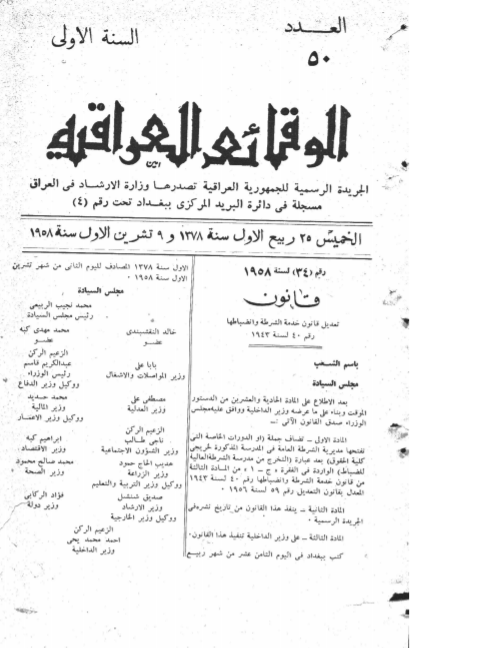 العدد
٥٠
السنة الاولى
الوقائع العراقية
الجريدة الرسمية للجمهورية العراقية تصدرها وزارة الارشاد فى العراق
مسجلة فى دائرة البريد المركزى ببغداد تحت رقم (٤)
الخميس ٢٥ ربيع الاول سنة ١٣٧٨ و ٩ تشرين الاول سنة ١٩٥٨
رقم (٣٤) لسنة ١٩٥٨
قانون
تعديل قانون خدمة الشرطة وانضباطها
رقم ٤٠ لسنة ١٩٤٣
باسم الشعب
مجلس السيادة
بعد الاطلاع على المادة الحادية والعشرين من الدستور
الموقت وبناء على ما عرضه وزير الداخلية ووافق عليه مجلس
الوزراء صدق القانون الآتى :ـ
المادة الاولى ـ تضاف جملة (او الدورات الخاصة التى
تفتحها مديرية الشرطة العامة فى المدرسة المذكورة لخريجى
كلية الحقوق) بعد عبارة (التخرج من مدرسة الشرطة العالية
للضباط) الواردة فى الفقرة ( ج ـ ١ ) من المادة الثالثة
من قانون خدمة الشرطة وانضباطها رقم ٤٠ لسنة ١٩٤٣
المعدل بقانون التعديل رقم ٥٩ لسنة ١٩٥٦ ٠
المادة الثانية ـ ينفذ هذا القانون من تاريخ نشره فى
الجريدة الرسمية ٠
المادة الثالثة ـ على وزير الداخلية تنفيذ هذا القانون٠
كتب ببغداد فى اليوم الثامن عشر من شهر ربيع
الاول سنة ١٣٧٨ المصادف لليوم الثانى من شهر تشرين
الاول سنة ١٩٥٨ ٠
مجلس السيادة
محمد نجيب الربيعى
رئيس مجلس السيادة
محمد مهدى كبه
عضو
خالد النقشبندى
عضو
الزعيم الركن
عبدالكريم قاسم
رئيس الوزراء
ووكيل وزير الدفاع
بابا على
وزير المواصلات والاشغال
محمد حديد
وزير المالية
ووكيل وزير الاعمار
مصطفى على
وزير العدلية
ابراهيم كبه
وزير الاقتصاد
الزعيم الركن
ناجى طالب
وزير الشؤون الاجتماعية
محمد صالح محمود
وزير الصحة
هديب الحاج حمود
وزير الزراعة
ووكيل وزير التربية والتعليم
فؤاد الركابى
وزير دولة
صديق شنشل
وزير الارشاد
ووكيل وزير الخارجية
الزعيم الركن
احمد محمد يحى
وزير الداخلية